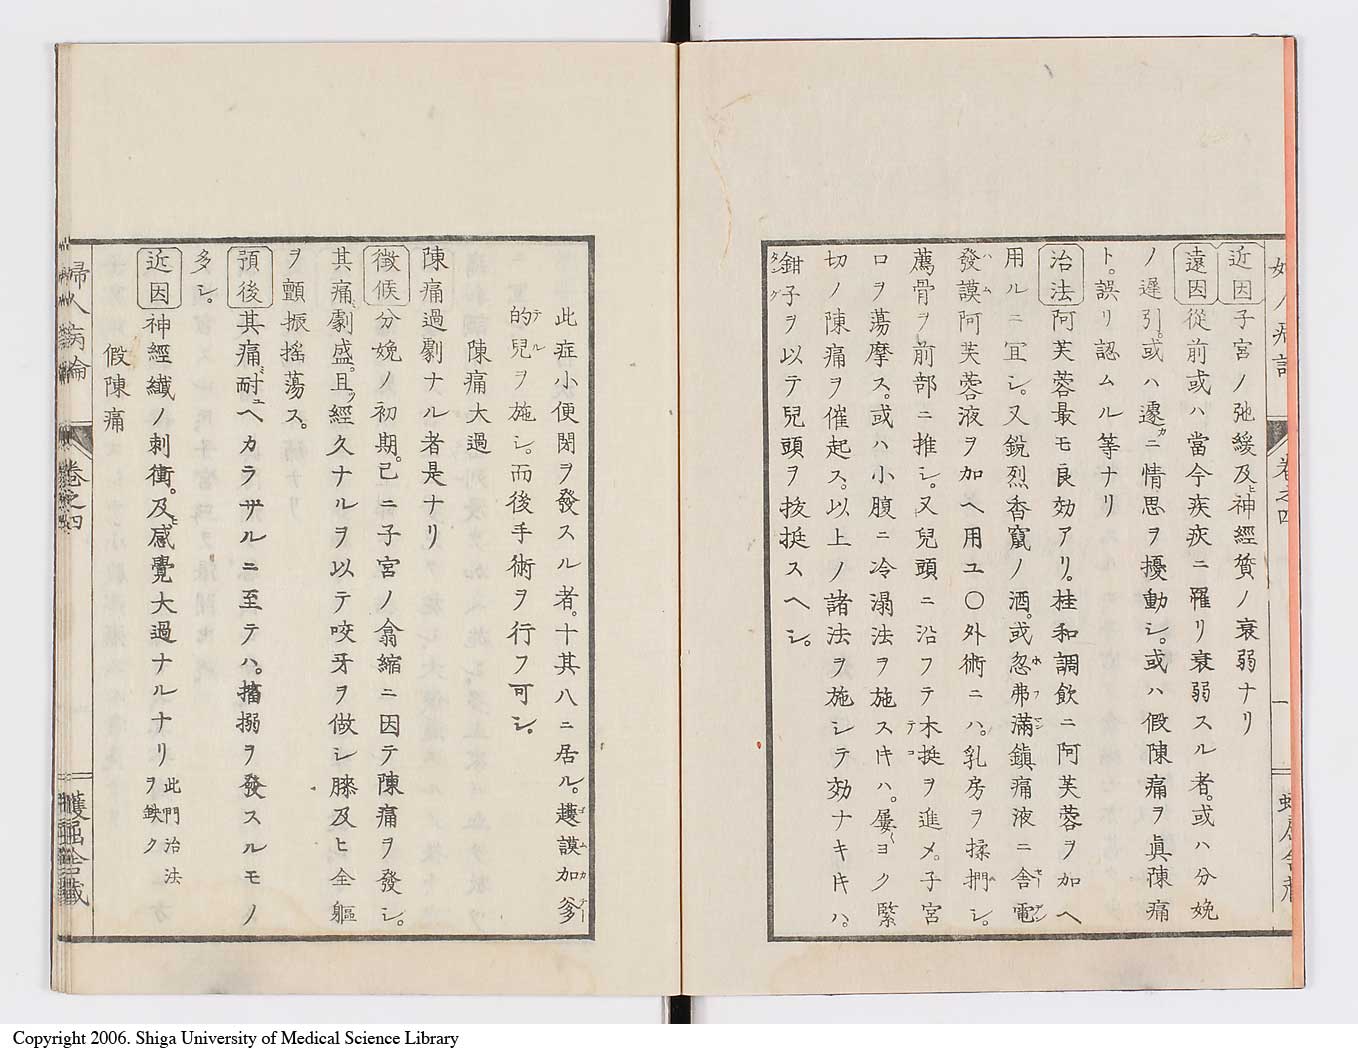 近因子宮ノ弛緩及ヒ神經質ノ衰弱ナリ
遠因從前或ハ當今疾疢ニ罹リ衰弱スル者。或ハ分娩
ノ遲引。或ハ遽カニ情思ヲ擾動シ。或ハ假陳痛ヲ眞陳痛
ト。誤リ認ムル等ナリ
治法阿芙蓉最モ良効アリ。桂和調飲ニ阿芙蓉ヲ加ヘ
用ルニ冝シ。又銳烈香竄ノ酒。或忽弗滿鎮痛液ニ舎電
發謨阿芙蓉液ヲ加ヘ用ユ〇外術ニハ。乳房ヲ揉捫シ。
薦骨ヲ前部ニ推シ。又兒頭ニ沿フテ木挺ヲ進メ。子宮
口ヲ蕩摩ス。或ハ小腹ニ冷溻法ヲ施スキハ。屢〻ヨク緊
切ノ陳痛ヲ催起ス。以上ノ諸法ヲ施シテ効ナキキハ。
鉗子ヲ以テ兒頭ヲ拔挺スヘシ。
婦人病論
卷之四
一
此症小便閉ヲ發スル者。十其八ニ居ル。謨加爹
的兒ヲ施シ。而後手術ヲ行フ可シ。
陳痛大過
陳痛過劇ナル者是ナリ
徴候分娩ノ初期。已ニ子宮ノ翕縮ニ因テ陳痛ヲ發シ。
其痛劇盛。且ツ經久ナルヲ以テ咬牙ヲ做シ膝及ヒ全軀
ヲ顫振搖蕩ス。
預後其痛耐ユヘカラサルニ至テハ。搐搦ヲ發スルモノ
多シ。
近因神經纎ノ刺衝。及ヒ感覺大過ナルナリ此門治法ヲ缺ク
假陳痛
婦人病論
卷之四
舎藏
Copyright 2006. Shiga University of Medical Science Library